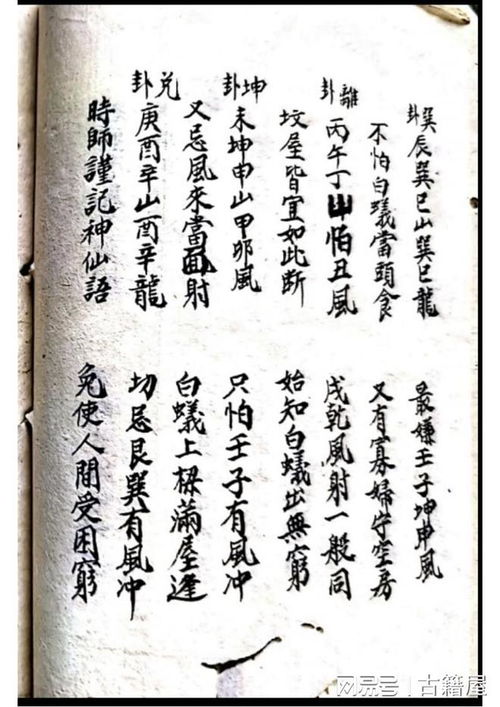 巽卦 辰巽巳山巽巳龍 最嫌壬子坤申風
不怕白蟻當頭食 又有寡婦守空房
離卦 丙午丁山怕丑風 戌乾風射一般同
坟屋皆宜如此断 始知白蟻出無窮
坤卦 未坤申山甲卯風 只怕壬子有風冲
又忌風來當面射 白蟻上樑滿屋逢
兑卦 庚酉辛山酉辛龍 切忌艮巽有風冲
時師謹記神仙語 免使人間受困窮
网易号 | 古籍屋